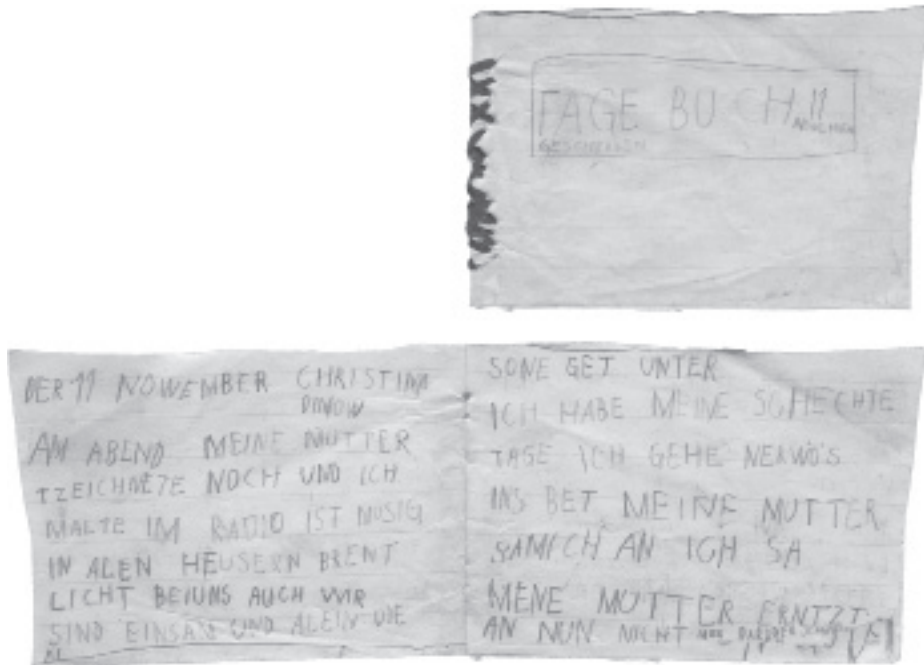 TAGE BUCH 11
GESCHRIBEN
DER 11 NOWEMBER CHRISTINA
AM ABEND MEINE MUTTER
TZEICHNETE NOCH UND ICH
MALTE IM RADIO IST MUSIG
IN ALEN HEUSERN BRENT
LICHT BEI UNS AUCH WIR
SIND EINSAM UND ALEIN DIE
SONE GET UNTER
ICH HABE MEINE SCHECHTE
TAGE ICH GEHE NERWÖS
INS BET MEINE MUTTER
SA MICH AN ICH SA
MENE MUTTER
AN NUN NICHT